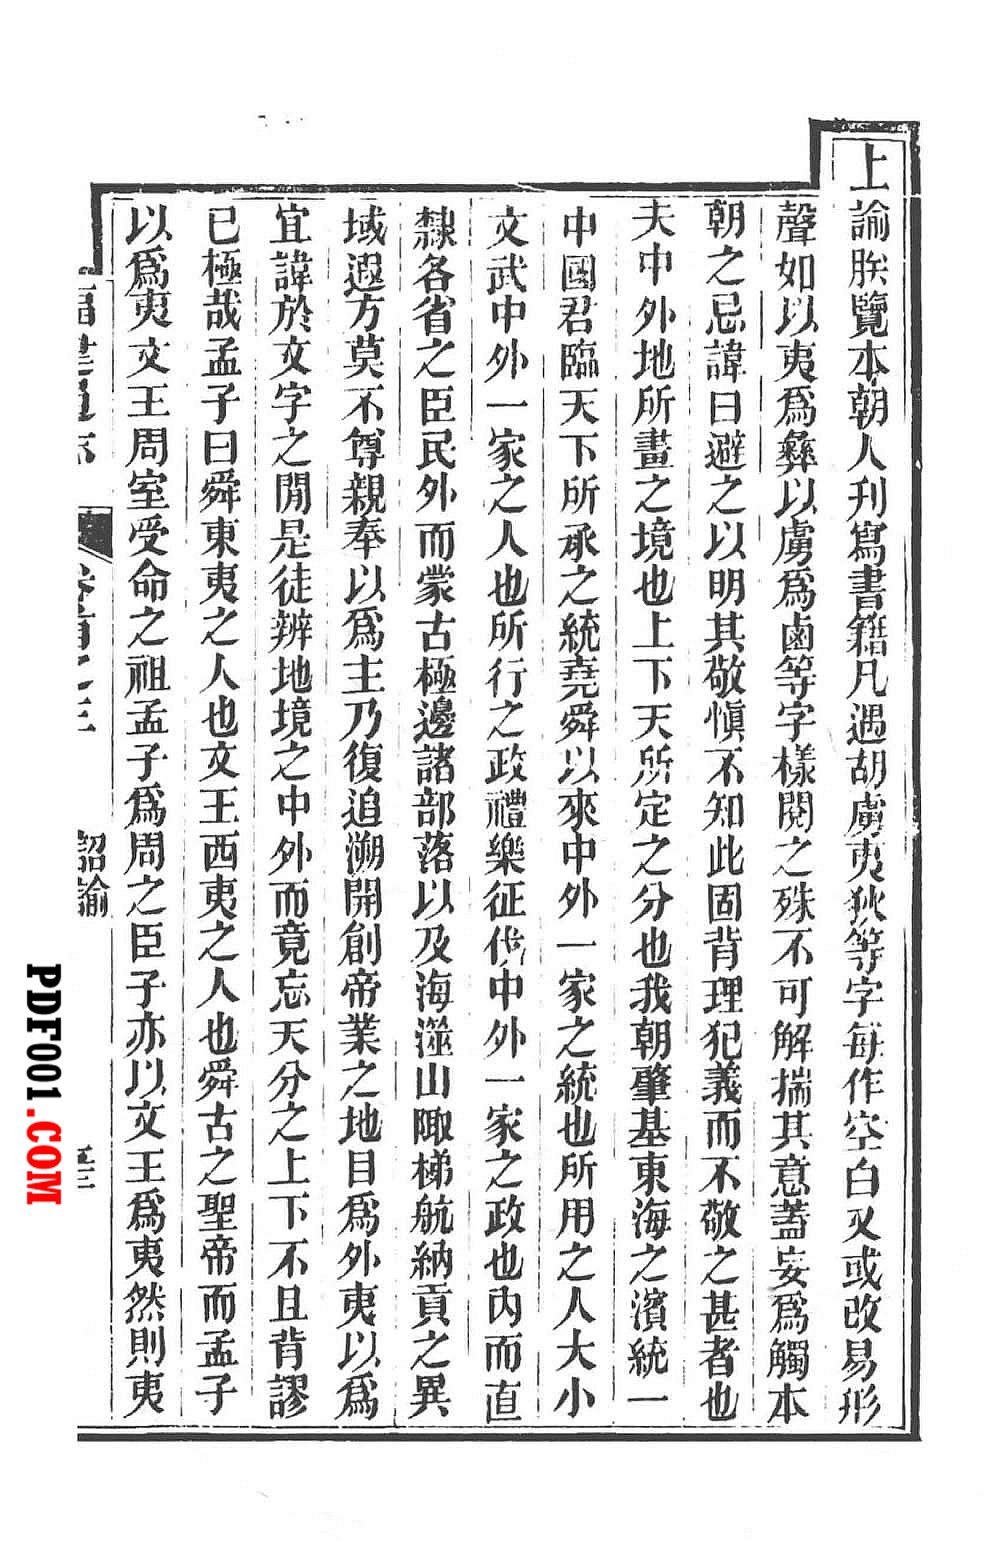 上諭朕覽本朝人刊寫書籍凡遇胡虜夷狄等字每作空白又或改易形
聲如以夷爲彝以虜爲鹵等字樣閱之殊不可解揣其意蓋妄爲觸本
朝之忌諱曰避之以明其敬愼不知此固背理犯義而不敬之甚者也
夫中外地所畫之境也上下天所定之分也我朝肇基東海之濱統一
中國君臨天下所承之統堯舜以來中外一家之統也所用之人大小
文武中外一家之人也所行之政禮樂征伐中外一家之政也內而直
隸各省之臣民外而蒙古極邊諸部落以及海澨山陬梯航納貢之異
域遐方莫不尊親奉以爲主乃復追溯開創帝業之地目爲外夷以爲
宜諱於文字之閒是徒辨地境之中外而竟忘天分之上下不且背謬
已極哉孟子曰舜東夷之人也文王西夷之人也舜古之聖帝而孟子
以爲夷文王周室受命之祖孟子爲周之臣子亦以文王爲夷然則夷
福建通志 卷首之三 詔諭
PDF001.COM